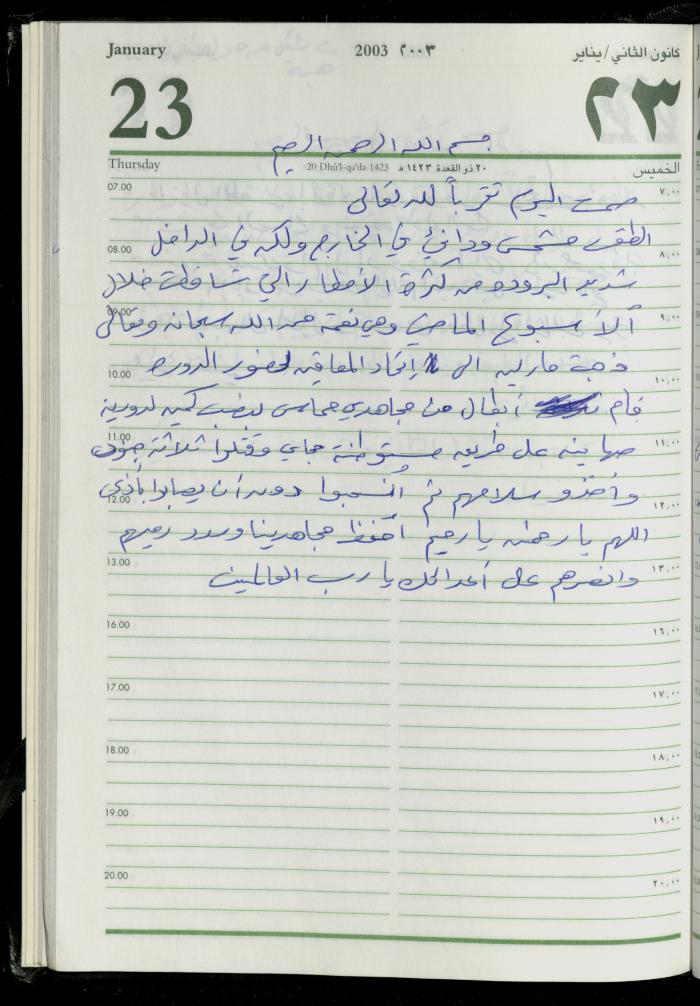 January 2003 ٢٠٠٣ كانون الثاني/يناير
23 ٢٣
بسم الله الرحمن الرحيم
Thursday 20 Dhû'l-qa'da 1423 ٢٠ ذو القعدة ١٤٢٣ هـ الخميس
07.00 ٧,٠٠
صمت اليوم تقرباً لله تعالى
الطقس مشمس ودافئ في الخارج ولكنه في الداخل
08.00 ٨,٠٠
شديد البروده من كثرة الأمطار التي تساقطت خلال
09.00 ٩,٠٠
ألأسبوع الماضي وهي نعمة من الله سبحانه وتعالى
ذهبت ماريه الى إتحاد المعاقين لحضور الدورة
10.00 ١٠,٠٠
قام أبطال من مجاهدي حماس بنصب كمين لدورية
11.00 ١١,٠٠
صهاينه على طريق مستوطنة حجاي وقتلوا ثلاثة جنود
وأخذو سلاحهم ثم أنسحبوا دون أن يصابوا بأذى
12.00 ١٢,٠٠
اللهم يا رحمن يا رحيم أحفظ مجاهدينا وسدد رميهم
13.00 ١٣,٠٠
وانصرهم على أعدائك يا رب العالمين
16.00 ١٦,٠٠
17.00 ١٧,٠٠
18.00 ١٨,٠٠
19.00 ١٩,٠٠
20.00 ٢٠,٠٠